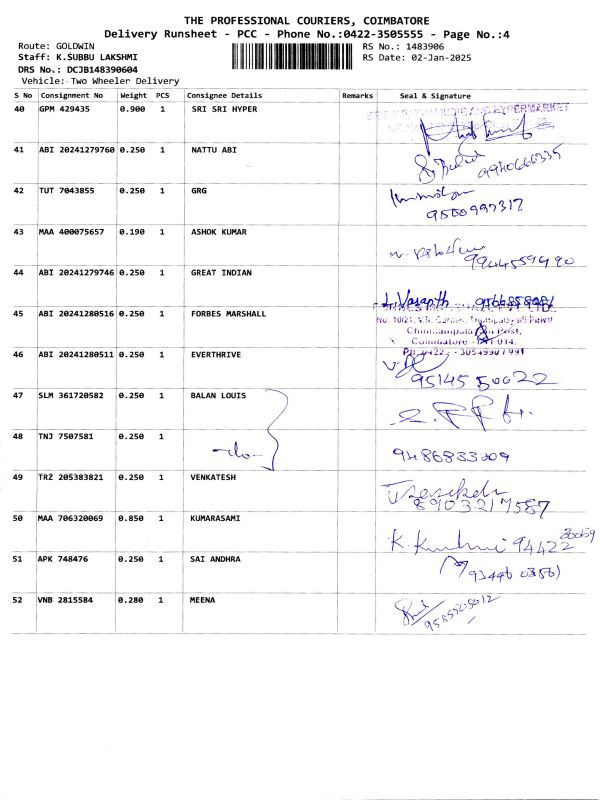 THE PROFESSIONAL COURIERS, COIMBATORE
Delivery Runsheet - PCC - Phone No.:0422-3505555 - Page No.:4
Route: GOLDWIN RS No.: 1483906
Staff: K.SUBBU LAKSHMI RS Date: 02-Jan-2025
DRS No.: DCJB148390604
Vehicle: Two Wheeler Delivery
S No Consignment No Weight PCS Consignee Details Remarks Seal & Signature
40 GPM 429435 0.900 1 SRI SRI HYPER
HYPERMARKET
41 ABI 20241279760 0.250 1 NATTU ABI
42 TUT 7043855 0.250 1 GRG
9500997317
43 MAA 400075657 0.190 1 ASHOK KUMAR
44 ABI 20241279746 0.250 1 GREAT INDIAN
Vasanth
45 ABI 20241280516 0.250 1 FORBES MARSHALL
Coimbatore
46 ABI 20241280511 0.250 1 EVERTHRIVE
95145 50022
47 SLM 361720582 0.250 1 BALAN LOUIS
48 TNJ 7507581 0.250 1
-do-
9486833009
49 TRZ 205383821 0.250 1 VENKATESH
8903217587
50 MAA 706320069 0.850 1 KUMARASAMI
94422
51 APK 748476 0.250 1 SAI ANDHRA
52 VNB 2815584 0.280 1 MEENA